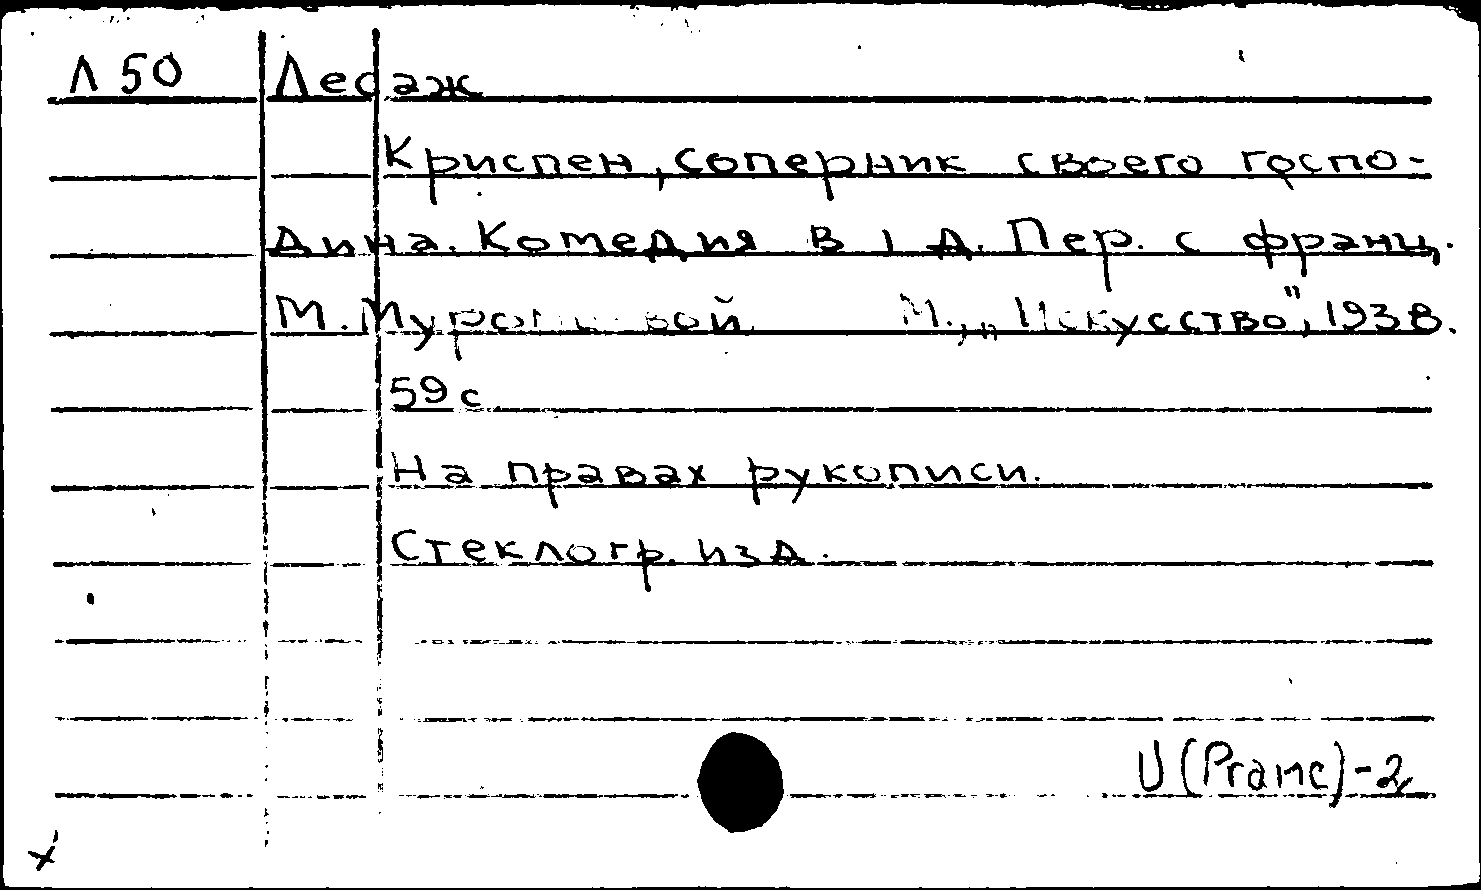 Л 50 Лесаж
Криспен, соперник своего госпо-
дина. Комедия в 1 д. Пер. с франц.
М. М., „Искусство", 1938.
59 с
На правах рукописи.
Стеклогр. изд.
U (Pranc)-2